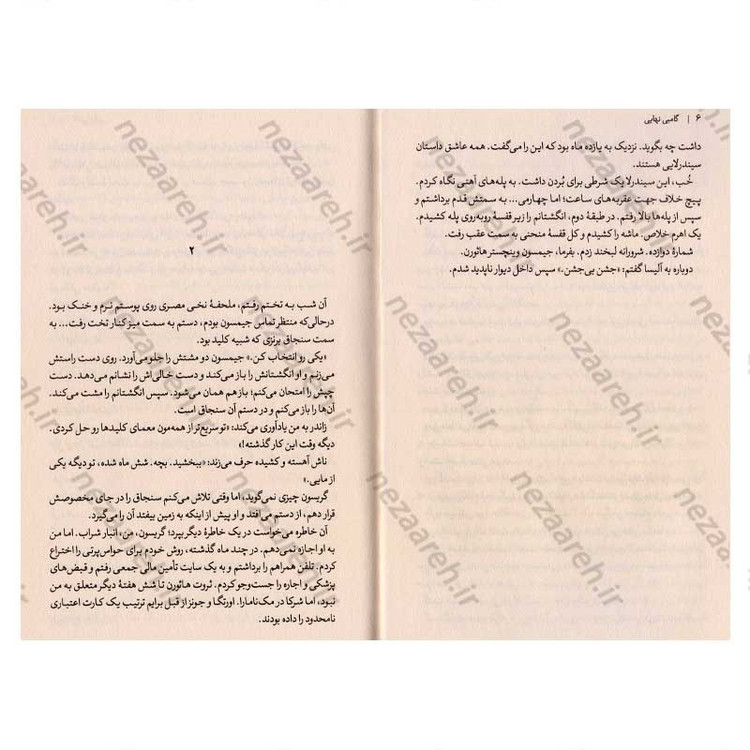 ۶ | گامبی نهایی
داشت چه بگوید. نزدیک به یازده ماه بود که این را می‌گفت. همه عاشق داستان
سیندرلایی هستند.
خُب، این سیندرلا یک شرطی برای بُردن داشت. به پله‌های آهنی نگاه کردم.
پیچ خلاف جهت عقربه‌های ساعت؛ اما چهارمی... به سمتش قدم برداشتم و
سپس از پله‌ها بالا رفتم. در طبقهٔ دوم، انگشتانم را زیر قفسهٔ روبه‌روی پله کشیدم.
یک اهرم خلاص. ماشه را کشیدم و کل قفسهٔ منحنی به سمت عقب رفت.
شمارهٔ دوازده. شرورانه لبخند زدم. بفرما، جیمسون وینچستر هاثورن.
دوباره به آلیسا گفتم: «جشن بی‌جشن.» سپس داخل دیوار ناپدید شدم.
۲
آن شب به تختم رفتم، ملحفهٔ نخی مصری روی پوستم نرم و خنک بود.
درحالی‌که منتظر تماس جیمسون بودم، دستم به سمت میز کنار تخت رفت... به
سمت سنجاق برنزی که شبیه کلید بود.
«یکی رو انتخاب کن.» جیمسون دو مشتش را جلو می‌آورد. روی دست راستش
می‌زنم و او انگشتانش را باز می‌کند و دست خالی‌اش را نشانم می‌دهد. دست
چپش را امتحان می‌کنم؛ باز هم همان می‌شود. سپس انگشتانم را مشت می‌کند.
آن‌ها را باز می‌کنم و در دستم آن سنجاق است.
زاندر به من یادآوری می‌کند: «تو سریع‌تر از همه‌مون معمای کلیدها رو حل کردی.
دیگه وقت این کار گذشته!»
ناش آهسته و کشیده حرف می‌زند: «ببخشید. بچه. شش ماه شده، تو دیگه یکی
از مایی.»
گریسون چیزی نمی‌گوید، اما وقتی تلاش می‌کنم سنجاق را در جای مخصوصش
قرار دهم، از دستم می‌افتد و او پیش از اینکه به زمین بیفتد آن را می‌گیرد.
آن خاطره می‌خواست در یک خاطرهٔ دیگر بپرد؛ گریسون، من، انبار شراب. اما من
به او اجازه نمی‌دهم. در چند ماه گذشته، روش خودم برای حواس‌پرتی را اختراع
کردم. تلفن همراهم را برداشتم و به یک سایت تأمین مالی جمعی رفتم و قبض‌های
پزشکی و اجاره را جست‌وجو کردم. ثروت هاثورن تا شش هفتهٔ دیگر متعلق به من
نبود، اما شرکا در مک‌نامارا، اورتگا و جونز از قبل برایم ترتیب یک کارت اعتباری
نامحدود را داده بودند.
nezaareh.ir